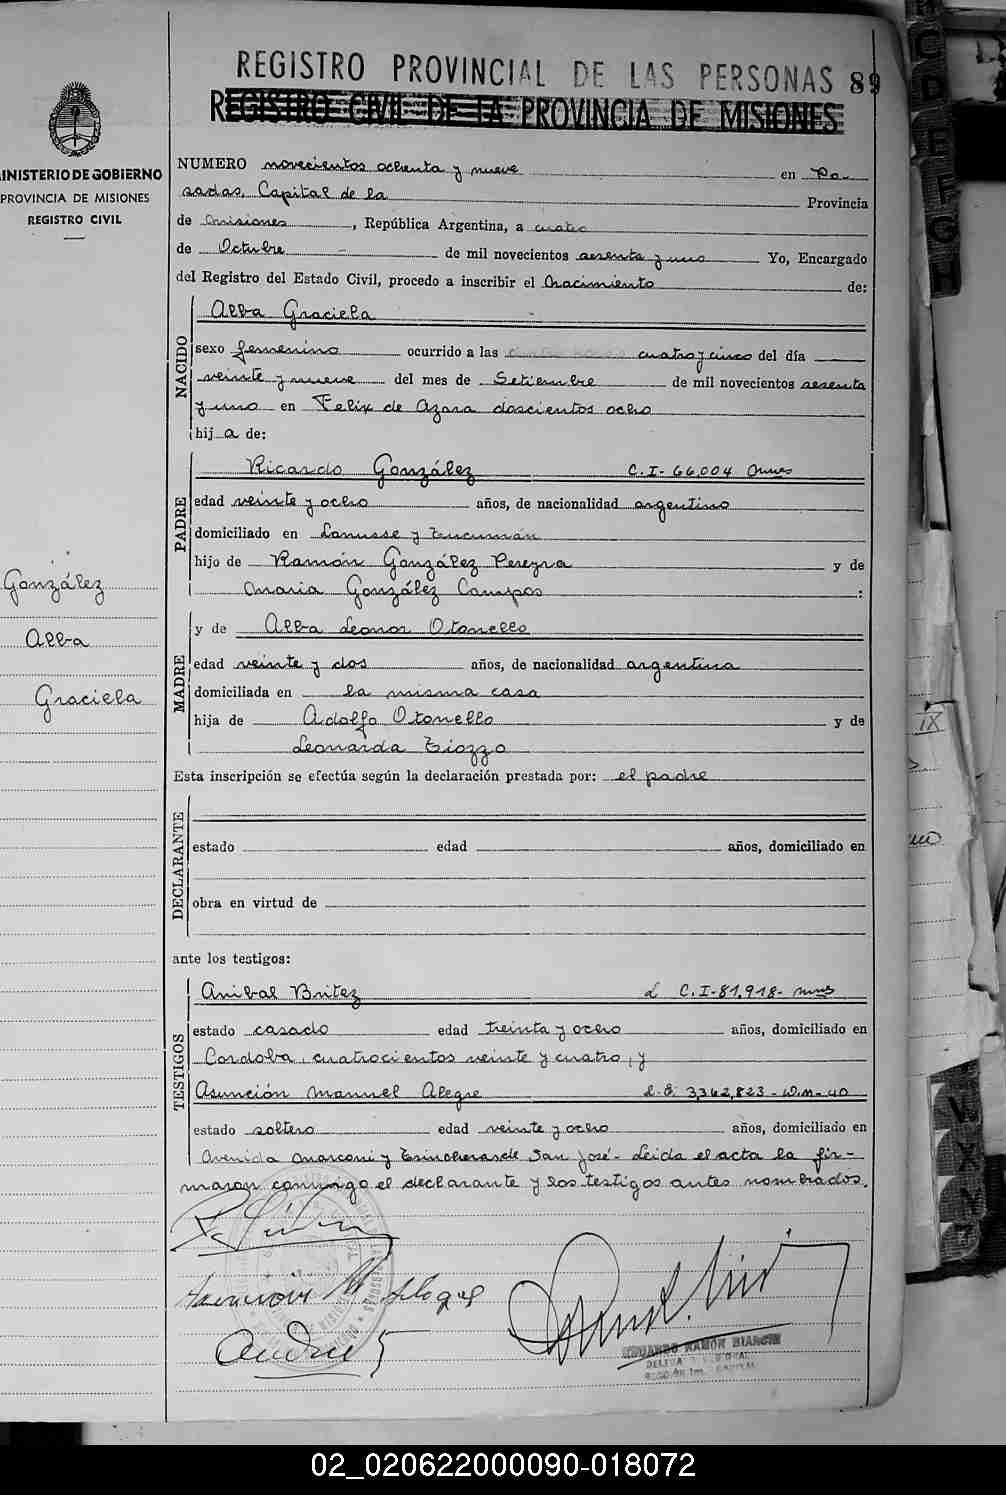 REGISTRO PROVINCIAL DE LAS PERSONAS 89
REGISTRO CIVIL DE LA PROVINCIA DE MISIONES
MINISTERIO DE GOBIERNO
PROVINCIA DE MISIONES
REGISTRO CIVIL
González
Alba
Graciela
NUMERO novecientos ochenta y nueve en Po-
sadas, Capital de la Provincia
de Misiones, República Argentina, a cuatro
de Octubre - de mil novecientos sesenta y uno Yo, Encargado
del Registro del Estado Civil, procedo a inscribir el Nacimiento de:
NACIDO
Alba Graciela
sexo femenino ocurrido a las cuatro y cinco del día
veinte y nueve del mes de Setiembre de mil novecientos sesenta
y uno en Felix de Azara doscientos ocho
hij a de:
PADRE
Ricardo González C.I- 66.004 Mnes
edad veinte y ocho años, de nacionalidad argentino
domiciliado en Lanusse y Tucumán
hijo de Ramón González Pereyra y de
Maria González Campos :
MADRE
y de Alba Leonor Otonello
edad veinte y dos años, de nacionalidad argentina
domiciliada en la misma casa
hija de Adolfo Otonello y de
Leonarda Tiozzo
Esta inscripción se efectúa según la declaración prestada por: el padre
DECLARANTE
estado edad años, domiciliado en
obra en virtud de
ante los testigos:
TESTIGOS
Anibal Britez C.I-81.918- Mnes
estado casado edad treinta y ocho años, domiciliado en
Cordoba, cuatrocientos veinte y cuatro, y
Asunción Manuel Alegre L.E. 3,362,823-D.M-40
estado soltero edad veinte y ocho años, domiciliado en
Avenida Marconi y Trincheras de San José- Leida el acta la fir-
maron conmigo el declarante y los testigos antes nombrados.
EDUARDO RAMON BIANCHI
02_020622000090-018072